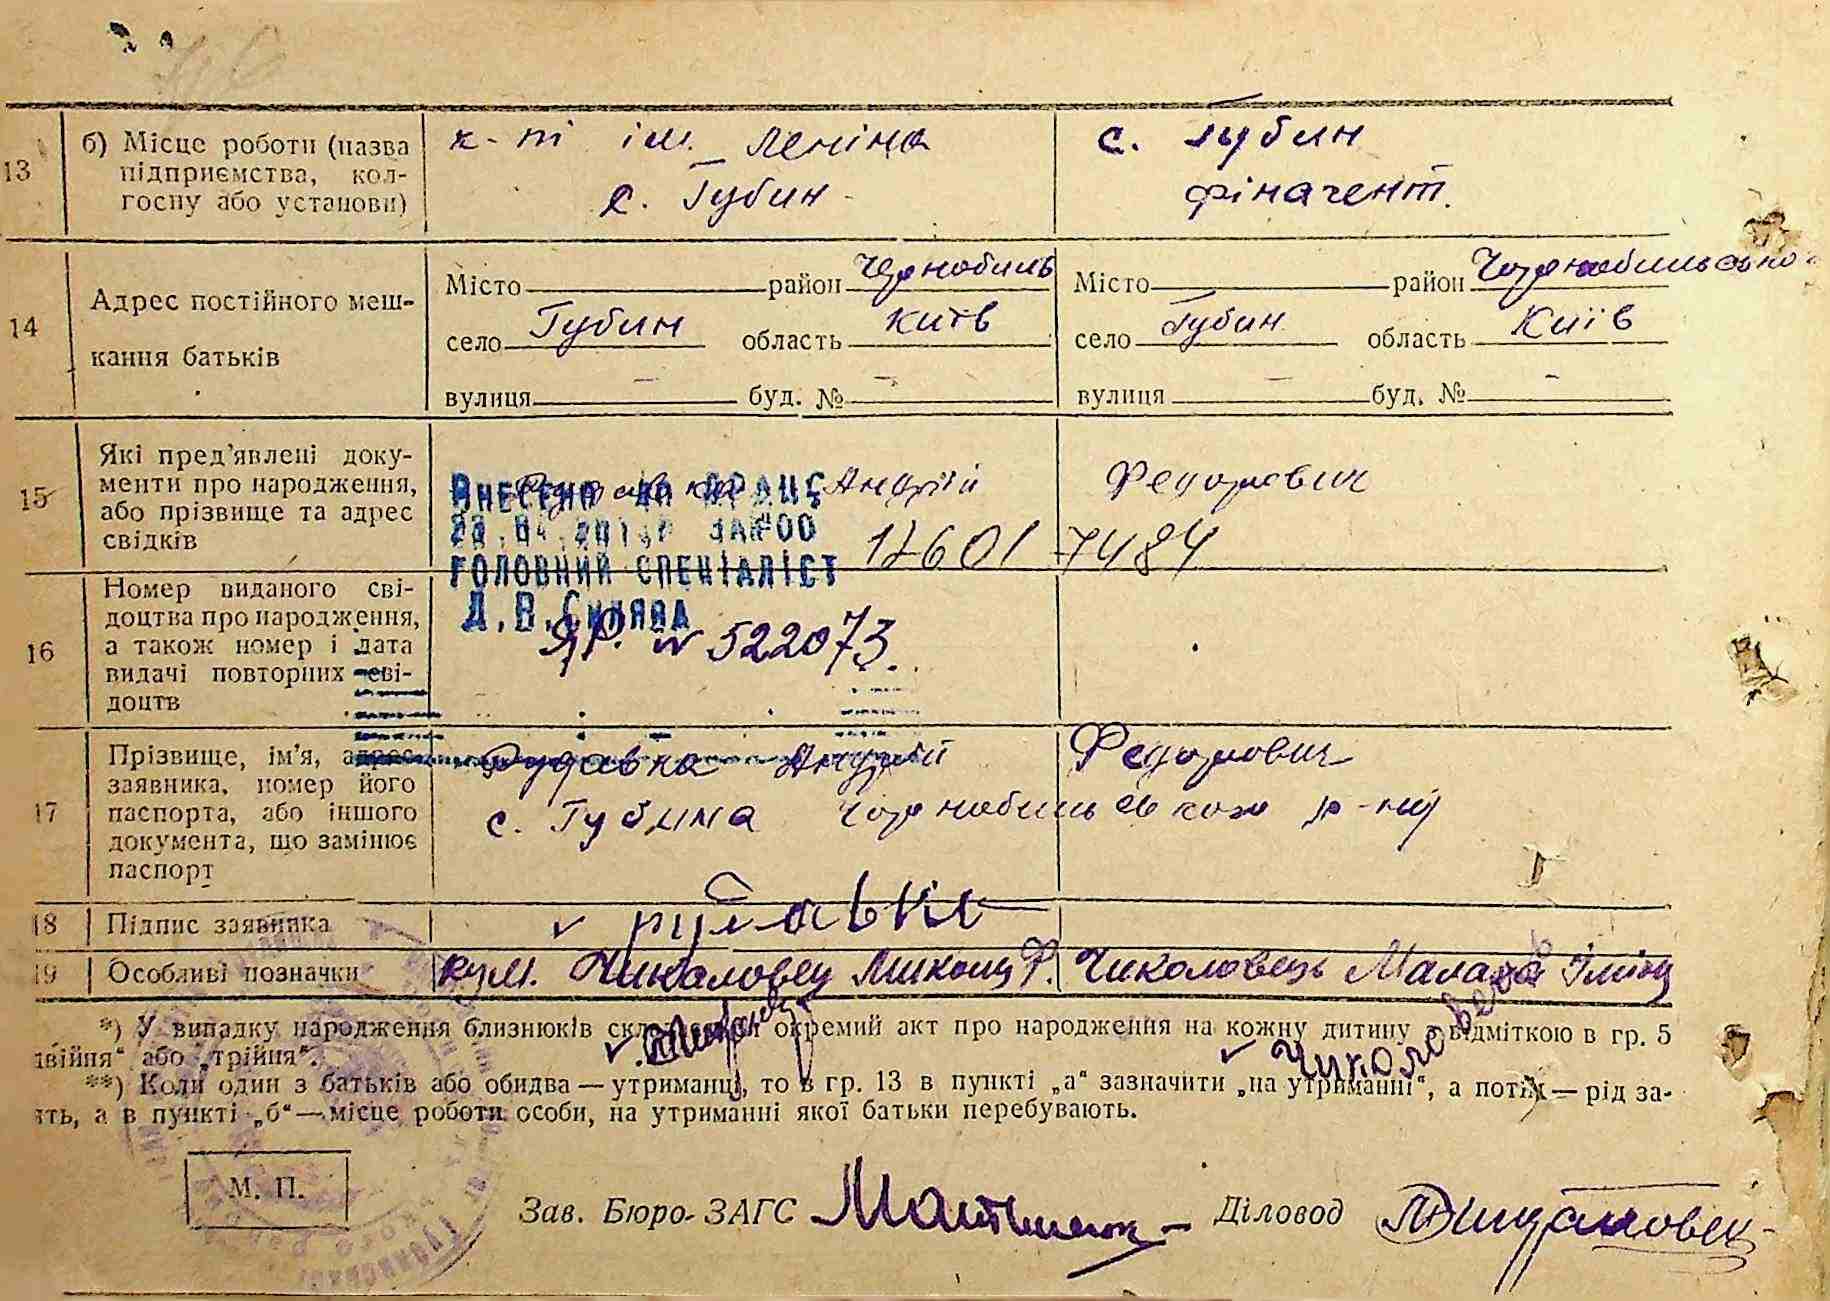 13 б) Місце роботи (назва підприємства, колгоспу або установи)
к-п ім. Леніна
с. Губин
с. Губин
фінагент.
14 Адрес постійного мешкання батьків
Місто район Чернобиль
село Губин область Київ
вулиця — буд. № —
Місто район Чорнобильсько
село Губин область Київ
вулиця — буд. № —
15 Які пред'явлені документи про народження, або прізвище та адрес свідків
Рудавка Андрій Федорович
ВНЕСЕНО ДО ДРАЦС
ГОЛОВНИЙ СПЕЦІАЛІСТ
17601 7484
16 Номер виданого свідоцтва про народження, а також номер і дата видачі повторних свідоцтв
ЯР. № 522073.
17 Прізвище, ім'я, адрес заявника, номер його паспорта, або іншого документа, що замінює паспорт
Рудавка Андрій Федорович
с. Губина Чорнобильського р-ну
18 Підпис заявника
Рудавка
19 Особливі позначки
кум. Чикаловец Ф. Чиколовець
*) У випадку народження близнюків окремий акт про народження на кожну дитину з відміткою в гр. 5
двійня“ або „трійня“.
**) Коли один з батьків або обидва — утриманці, то в гр. 13 в пункті „а“ зазначити „на утриманні“, а потім — рід за-
ять, а в пункті „б“ — місце роботи особи, на утриманні якої батьки перебувають.
М. П.
Зав. Бюро-ЗАГС Діловод